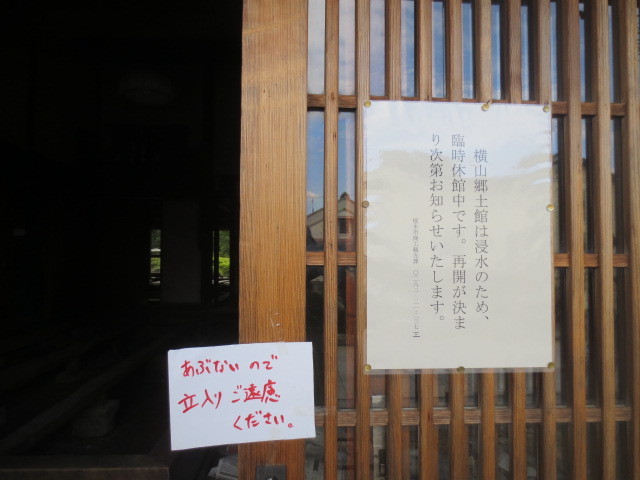 横山郷土館は浸水のため、
臨時休館中です。再開が決ま
り次第お知らせいたします。
あぶないので
立入りご遠慮
ください。